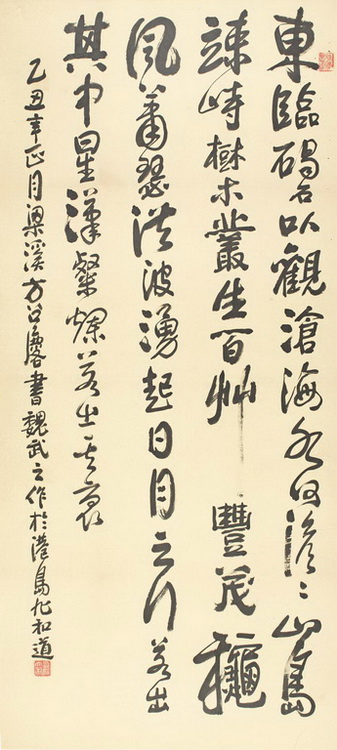 東臨碣以觀滄海水何澹〻山島
竦峙樹木叢生百艸豐茂穐
風蕭瑟洪波湧起日月之行若出
其中星漢粲爛若出其裏
乙丑年正月梁溪方召麐書魏武之作於港島旭和道